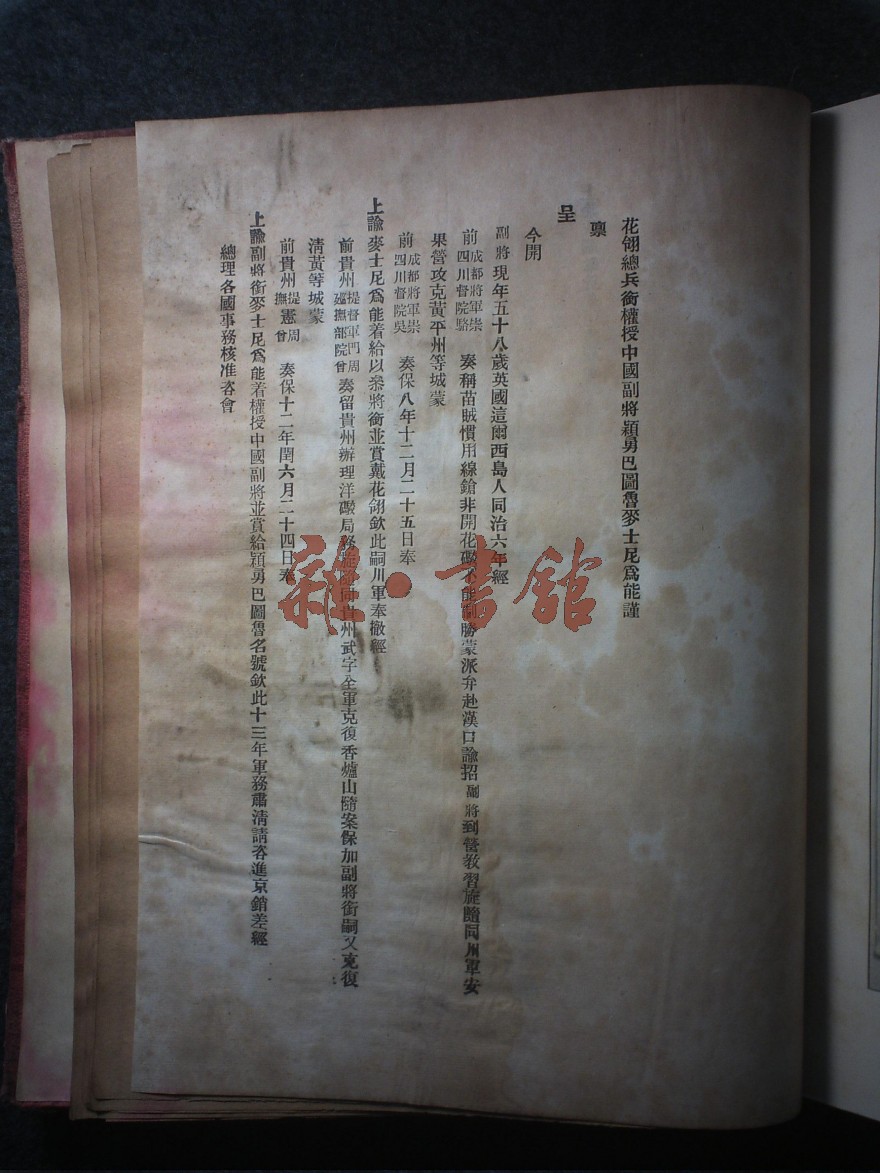 花翎總兵銜權授中國副將穎勇巴圖魯麥士尼爲能謹
稟
呈
今開
副將現年五十八歲英國這爾西島人同治六年經
前成都將軍崇四川督院駱奏稱苗賊慣用線鎗非開花礮不能制勝蒙派弁赴漢口諭招副將到營教習旋隨同川軍安
果營攻克黃平州等城蒙
前成都將軍崇四川督院吳奏保八年十二月二十五日奉
上諭麥士尼爲能着給以叅將銜並賞戴花翎欽此嗣川軍奉撤經
前貴州提督軍門周廵撫部院曾奏留貴州辦理洋礮局務同貴州武字全軍克復香爐山隨案保加副將銜嗣又克復
清黃等城蒙
前貴州提周撫曾憲奏保十二年閏六月二十四日奉
上諭副將銜麥士尼爲能着權授中國副將並賞給穎勇巴圖魯名號欽此十三年軍務肅清請咨進京銷差經
總理各國事務核准咨會
雜·書館